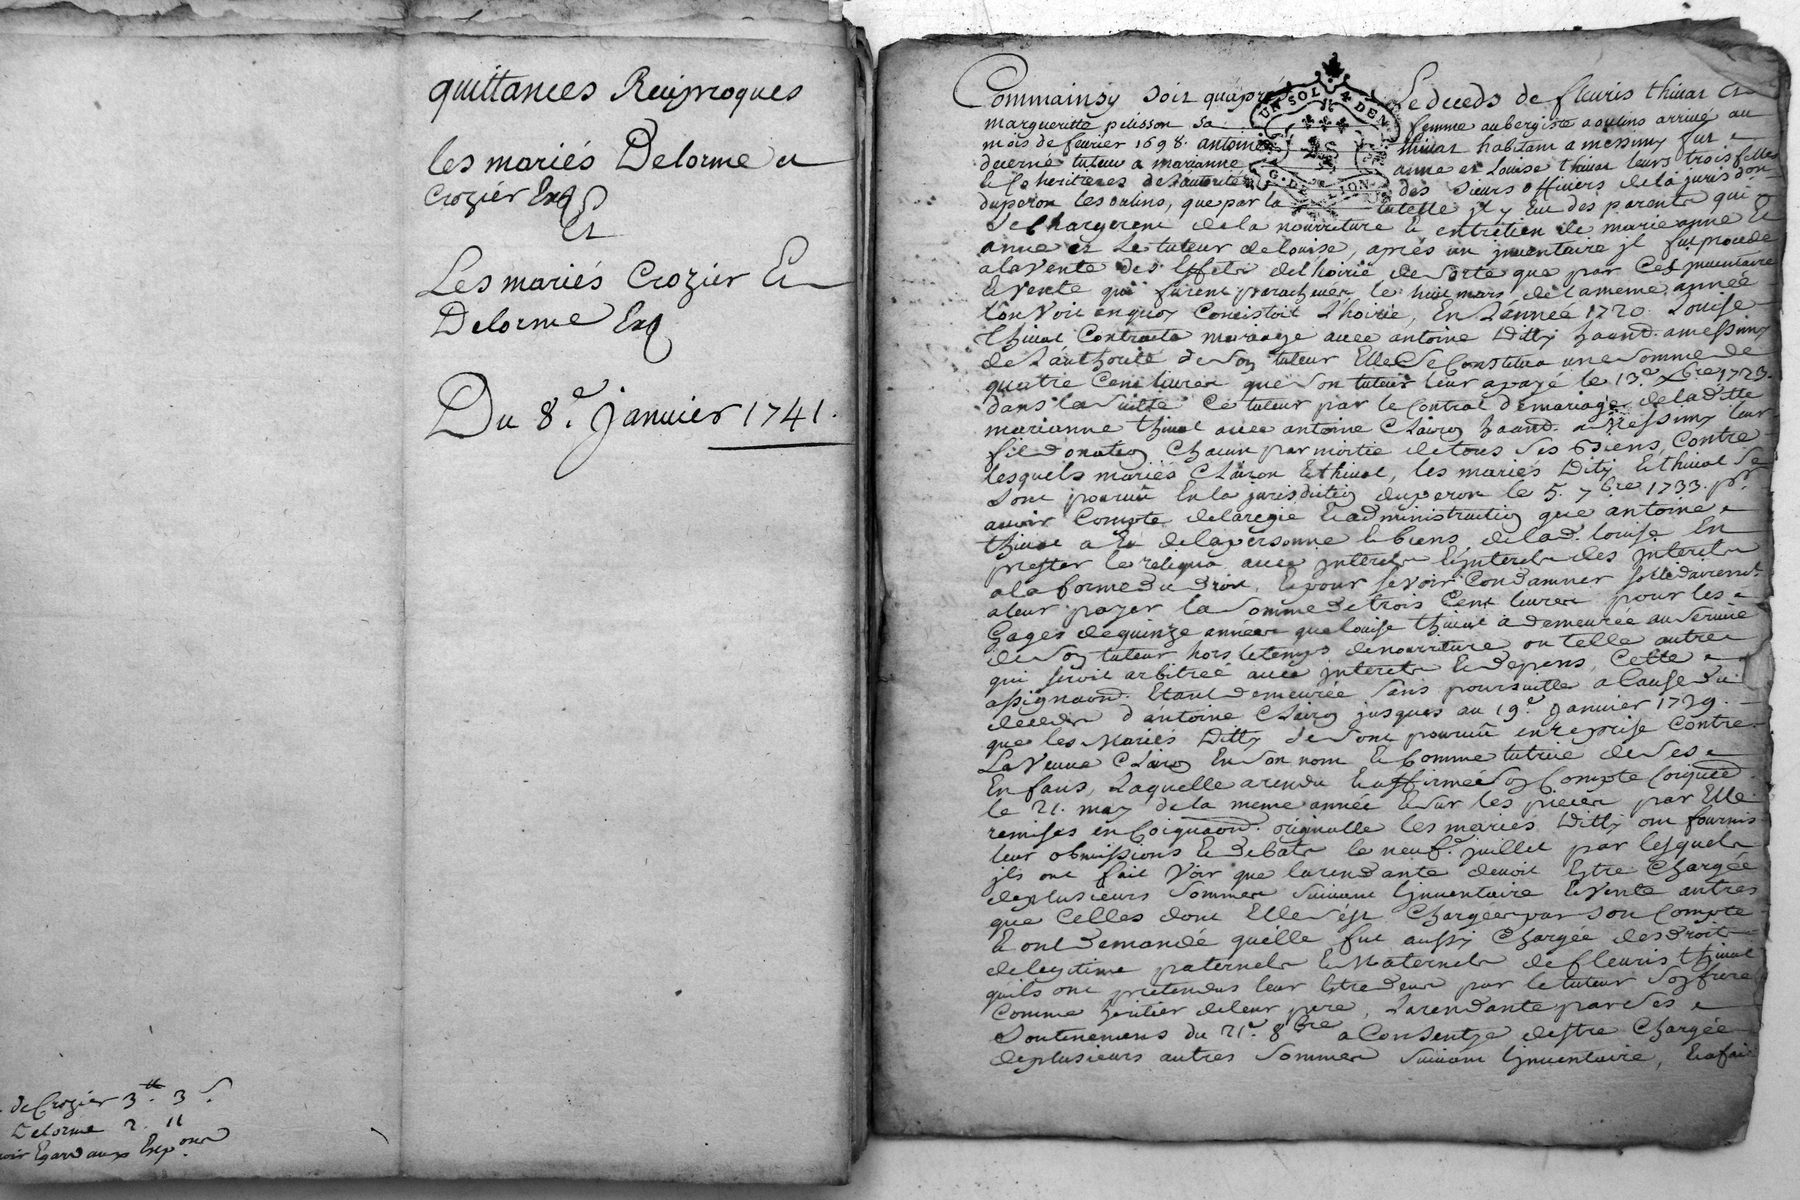 quittances Reciproques
les mariés Delorme et
Crozier Exp
Et
Les mariés Crozier Et
Delorme Exp
Du 8.e Janvier 1741.
de Crozier 3.tt 3 s.
Delorme 2. 11
Egard aux Exp.ons
Commainsy soit quaprés Le deceds de fleuris thiuat Et
margueritte pelisson sa femme aubergiste a oulins arrivé au
mois de feurier 1698. antoine thiuat habitant a messimy fut
decerné tuteur a marianne anne et Louise thiuat leurs trois filles
& Coheritieres de l'autorité des sieurs officiers de la jurisdon
duperon les oulins, que par la tutelle jl y Eut des parents qui
se chargerent de la nourriture & entretien de marie anne &
anne et Le tuteur de louise, aprés un jnventaire jl fut procedé
a la vente des Effets de l'hoirie de sorte que par Cet jnventaire
& vente qui furent parachevés le huit mars de la meme année
l'on voit en quoy Concistoit L'hoirie, En L'année 1720. Louise
thiuat Contracta mariage avec antoine Ditty habitt. a messimy
de L'authorité de son tuteur Elle se Constitua une somme de
quatre Cent livres que son tuteur leur a payé le 13.e xbre 1723.
dans la suitte Ce tuteur par le Contrat de mariage de la ditte
marianne thiuat avec antoine Clairon habitt. a Messimy leur
fit donation Chacun par moitié de tous ses Biens, Contre
lesquels mariés Clairon & thiuat, les mariés Ditty & thiuat se
sont pourvû En la jurisdiction duperon le 5. 7bre 1733. pr.
avoir Compte de la regie & administration que antoine
thiuat a Eu de la personne & biens de lad. louise En
prester le reliqua avec jnterets & jnterets des jnterets
a la forme du droit, & pour se voir Condamner sollidairemt.
a leur payer la somme de trois Cent livres pour les
Gages de quinze années que louise thiuat a demeurée au service
de son tuteur hors le temps de nourriture ou telle autre
qui seroit arbitrée avec jnterets & depens, Cette
assignaon. Etant demeurée sans poursuitte a Cause du
deceds d'antoine Clairon jusques au 19.e Janvier 1739.
que les Mariés Ditty se sont pourvû en reprise Contre
La Veuve Clairon En son nom & Comme tutrice de ses
Enfans, Laquelle a rendu & affirmé son Compte
le 21. may de la meme année & sur les pieces par Elle
remises en originalle les mariés Ditty ont fournis
leur obmissions & debats le neuf.e juillet par lesquels
jls ont fait Voir que la rendante devoit Estre Chargée
de plusieurs sommes suivant l'jnventaire & vente autres
que Celles dont Elle s'est Chargée par son Compte
& ont demandé quelle fut aussy Chargée des droits
de legitime paternels & Maternels de fleuris thiuat
quils ont pretendus leur Estre deus par le tuteur son frere
Comme heritier de leur pere, La rendante par ses
soutenemens du 21.e 8bre a Consenty destre Chargée
de plusieurs autres sommes suivant l'jnventaire, & a fait